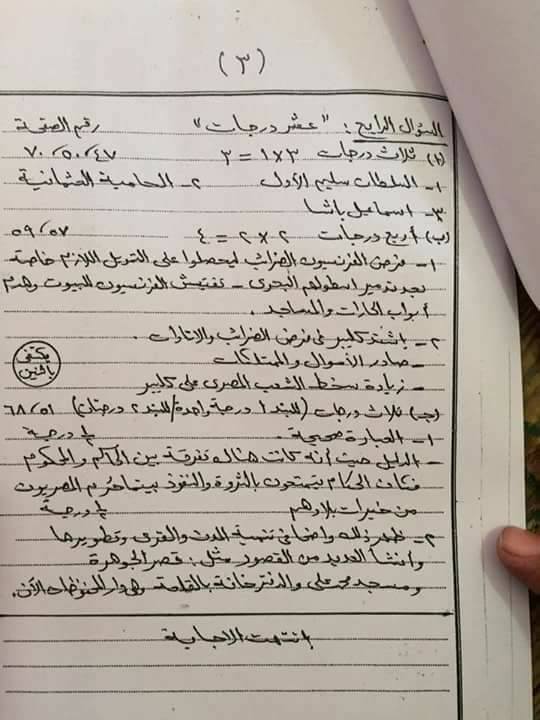 (٣)
السؤال الرابع: "عشر درجات" رقم الصفحة
(أ) ثلاث درجات ٣×١ = ٣ ٤٧/٥٠/٧٠
١- السلطان سليم الأول ٢- الحامية العثمانية
٣- اسماعيل باشا
(ب) أربع درجات ٢×٢ = ٤ ٥٧/٥٩
١- فرض الفرنسيون الضرائب ليحصلوا على التمويل اللازم خاصة
بعد تدمير اسطولهم البحرى - تفتيش الفرنسيون للبيوت وهدم
أبواب الحارات والمساجد.
٢- اشتد كليبر فى فرض الضرائب والاتاوات.
- صادر الأموال والممتلكات
- زيادة سخط الشعب المصرى على كليبر
يكتفى باثنين
(جـ) ثلاث درجات (للبند ١ درجة واحدة/للبند ٢ درجتان) ٥١/٦٨
١- العبارة صحيحة. ½ درجة
- الدليل حيث أنه كانت هناك تفرقة بين الحاكم والمحكوم
فكان الحكام يتمتعون بالثروة والنفوذ بينما حُرم المصريون
من خيرات بلادهم ½ درجة
٢- ظهر ذلك واضحا فى تنمية المدن والقرى وتطويرها
وأنشأ العديد من القصور مثل: قصر الجوهرة
ومسجد محمد على والدفترخانة بالقلعة وهى دار المحفوظات الآن.
إنتهت الإجابة